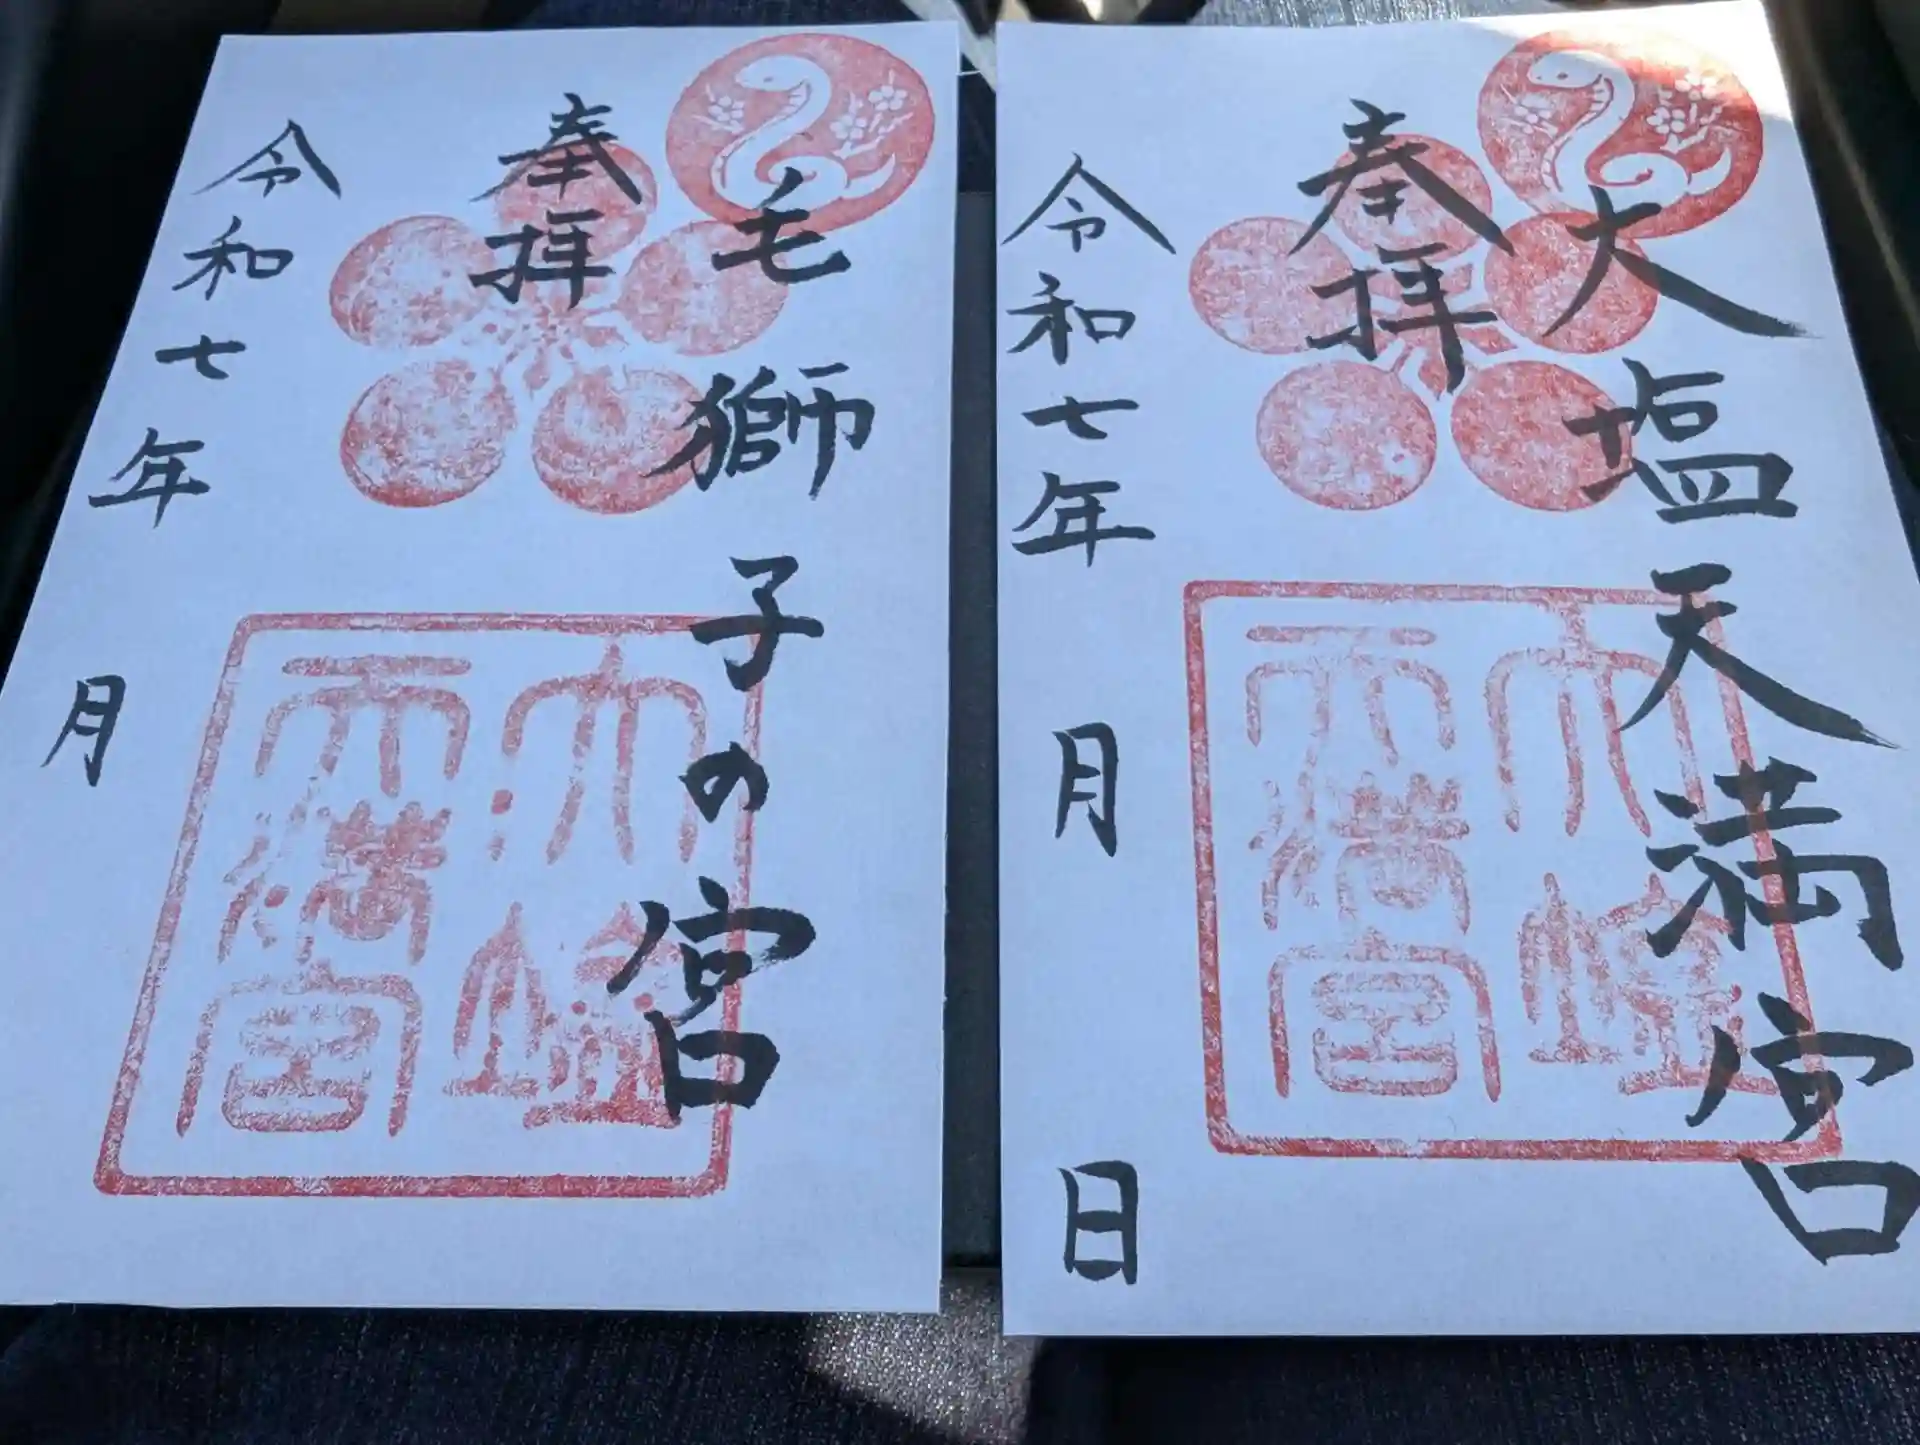 大塩天満宮
奉拝
令和七年
月
日
大塩
天満宮
毛獅子の宮
奉拝
令和七年
月
大塩
天満宮